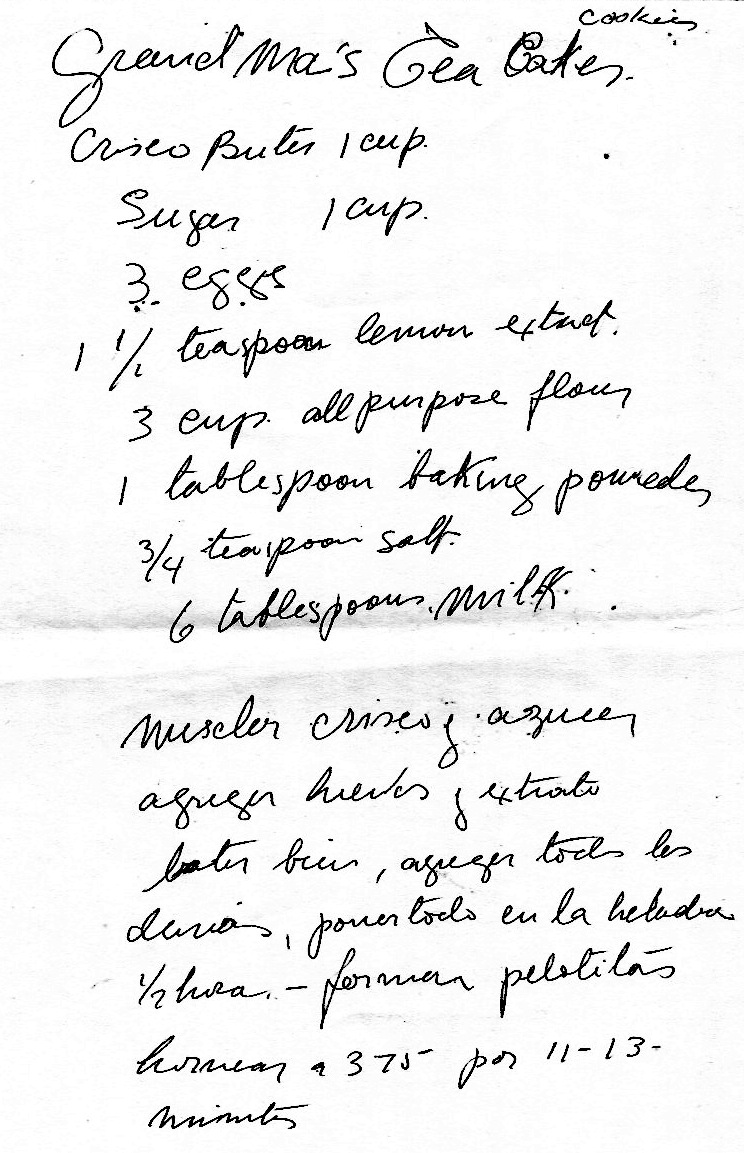 cookies
Grand Ma's Tea Cakes.
Crisco Buter 1 cup.
Sugar 1 cup.
3. eggs
1 1/2 teaspoon lemon extract.
3 cup. all purpose flour
1 tablespoon baking pouweder
3/4 teaspoon salt.
6 tablespoons. milk.
Musclar crisco y azucar
agregar huevos y extrato
bater bien, agregar todo los
demás, poner todo en la heladera
1/2 hora. - formar pelotitas
hornear a 375 por 11-13-
minutos